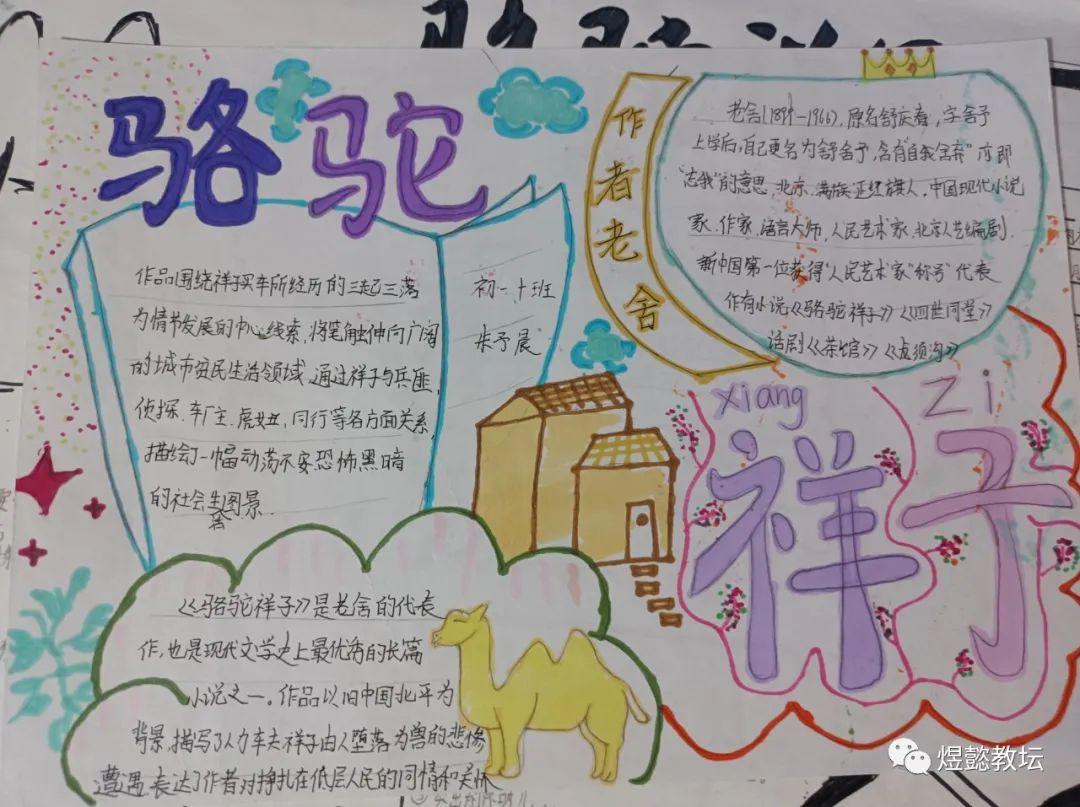 骆驼
作品围绕祥子买车所经历的三起三落
为情节发展的中心线索,将笔触伸向广阔
的城市贫民生活领域,通过祥子与兵匪,
侦探、车厂主、虎妞、同行等各方面关系,
描绘了一幅动荡不安恐怖黑暗
的社会生图景.
初一十班
作者老舍
老舍(1899—1966),原名舒庆春,字舍予
上学后,自己更名为舒舍予,含有"自我舍弃"亦即
"忘我"的意思,北京、满族正红旗人,中国现代小说
家、作家,语言大师,人民艺术家、北京人艺编剧.
新中国第一位获得"人民艺术家"称号"代表
作有小说《骆驼祥子》《四世同堂》
话剧《茶馆》《龙须沟》
xiang zi
祥子
《骆驼祥子》是老舍的代表
作,也是现代文学史上最优秀的长篇
小说之一。作品以旧中国北平为
背景,描写了人力车夫祥子由人堕落为兽的悲惨
遭遇.表达了作者对挣扎在低层人民的同情和关怀
煜懿教坛